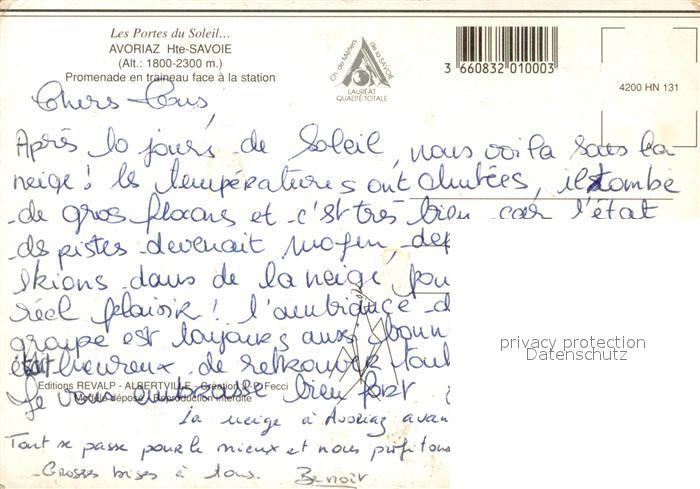 Les Portes du Soleil...
AVORIAZ Hte-SAVOIE
(Alt.: 1800-2300 m.)
Promenade en traineau face à la station
Ch. de Métiers de la SAVOIE
LAURÉAT
QUALITÉ TOTALE
3 660832 010003
4200 HN 131
Chers Tous,
Après 10 jours de Soleil, nous voila sous la
neige! les températures ont chutées, il tombe
de gros flocons et c'est très bien car l'état
des pistes devenait moyen,
skions dans de la neige,
réel plaisir! l'ambiance
groupe est toujours aussi bonn
heureux de retrouver tout
privacy protection
Datenschutz
Editions REVALP - ALBERTVILLE - Création J.P. Fecci
Modèle déposé - Reproduction interdite
Je vous embrasse bien fort
La neige à Avoriaz avan
Tout se passe pour le mieux et nous profitons
Grosses bises à tous. Benoit